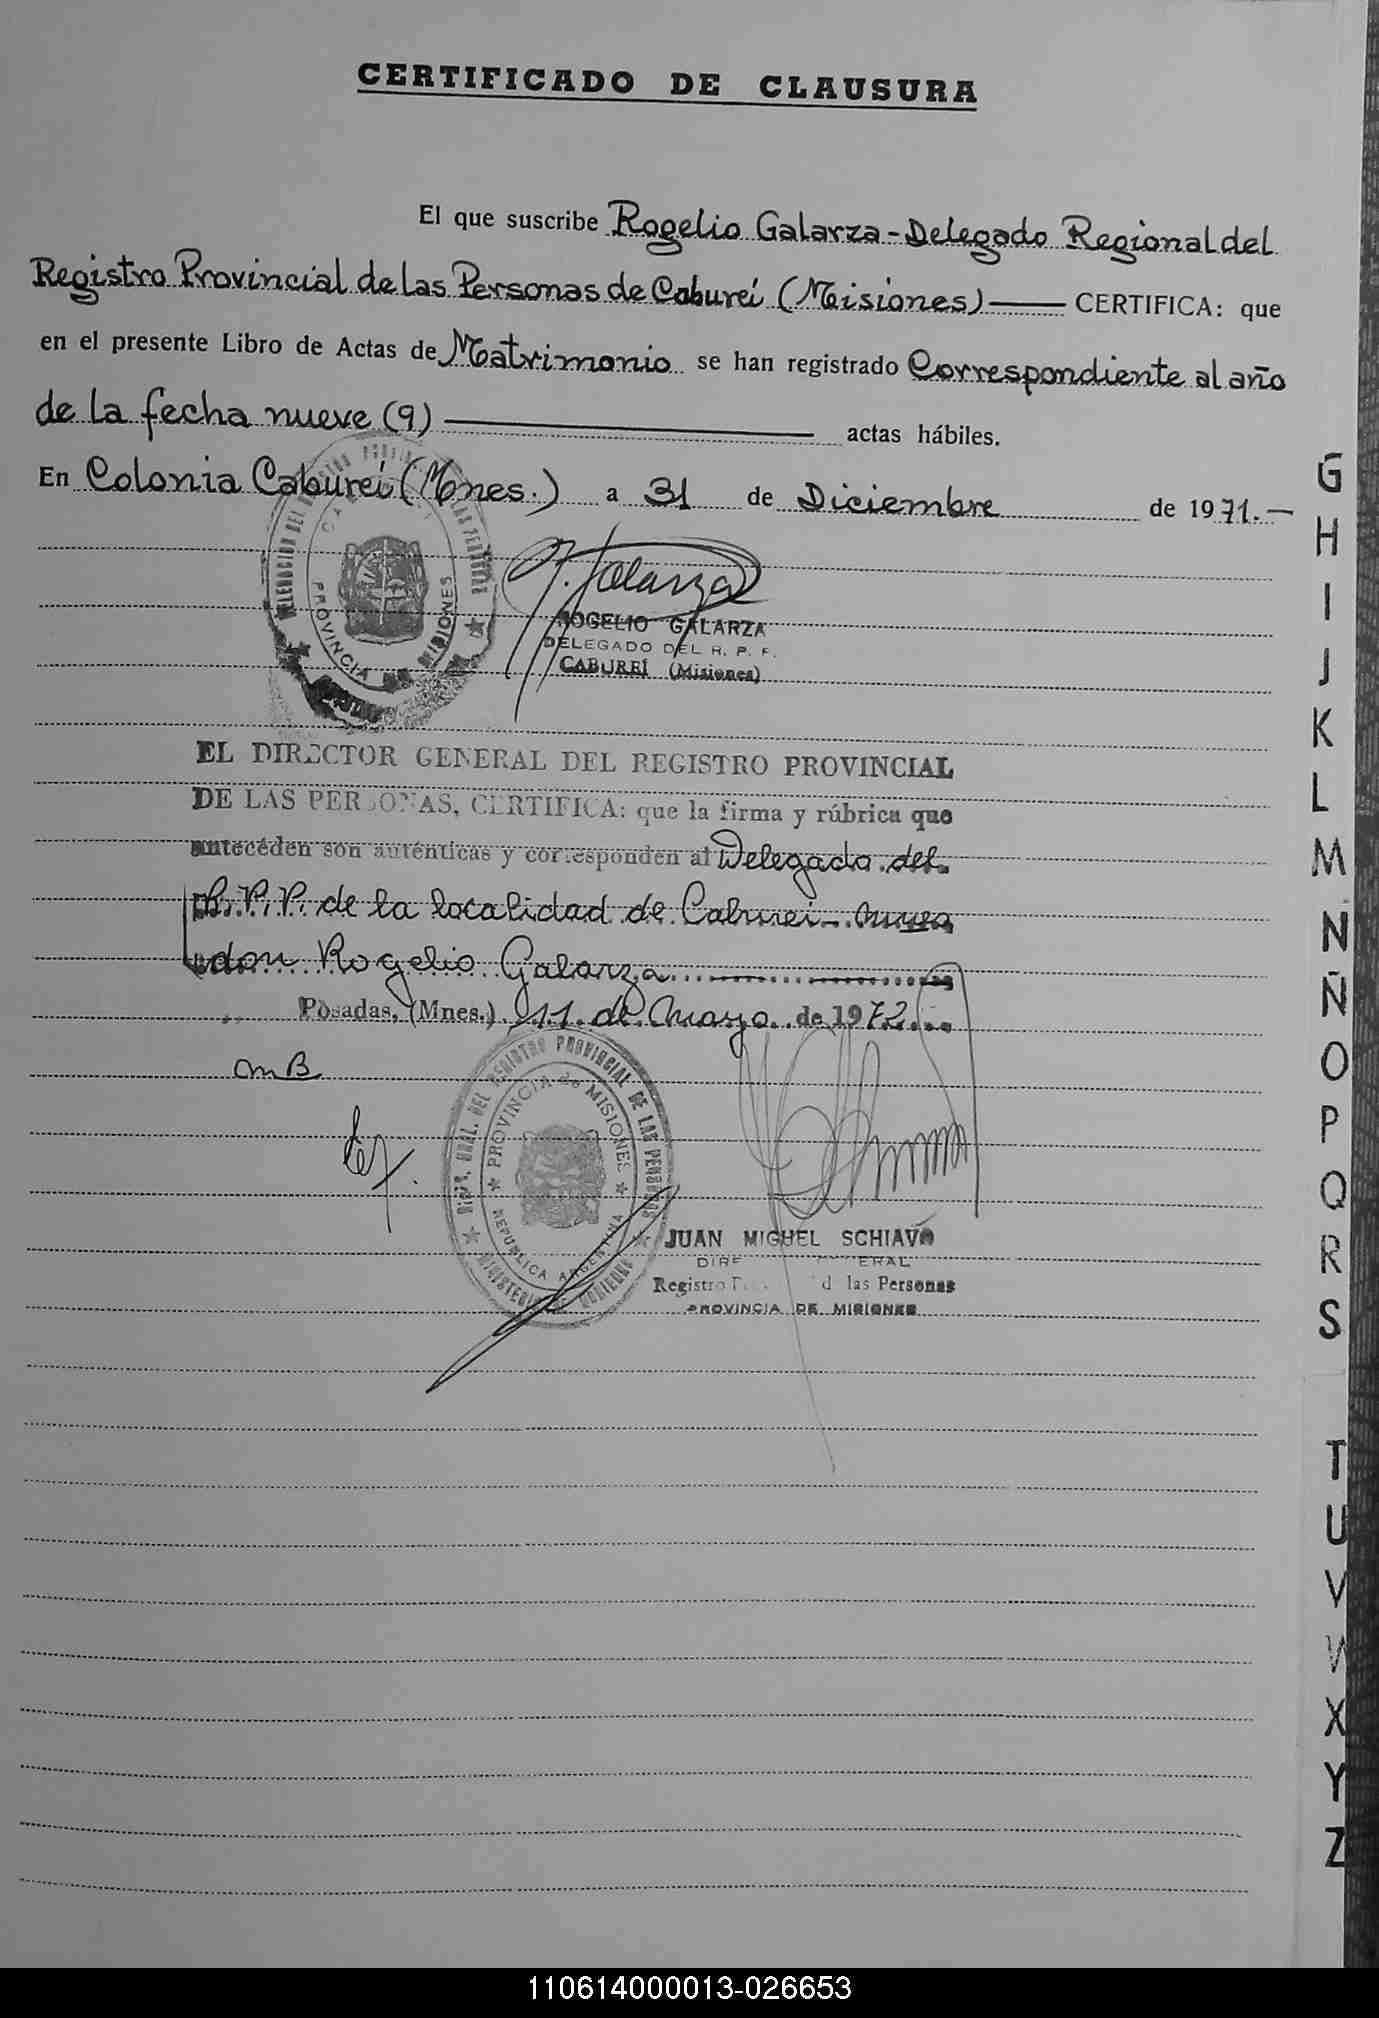 CERTIFICADO DE CLAUSURA
El que suscribe Rogelio Galarza - Delegado Regional del
Registro Provincial de las Personas de Caburei (Misiones) CERTIFICA: que
en el presente Libro de Actas de Matrimonio se han registrado Correspondiente al año
de la fecha nueve (9) actas hábiles.
En Colonia Caburei (Mnes.) a 31 de Diciembre de 1971.-
DELEGACION DEL REGISTRO PROVINCIAL DE LAS PERSONAS
PROVINCIA DE MISIONES
R. Galarza
ROGELIO GALARZA
DELEGADO DEL R. P. P.
CABUREÍ (Misiones)
EL DIRECTOR GENERAL DEL REGISTRO PROVINCIAL
DE LAS PERSONAS, CERTIFICA: que la firma y rúbrica que
anteceden son auténticas y corresponden al Delegado del
R.P.P. de la localidad de Caburei - Mnes
don Rogelio Galarza
Posadas, (Mnes.) 11 de Marzo de 1972
mB
DIREC. GRAL. DEL REGISTRO PROVINCIAL DE LAS PERSONAS
PROVINCIA de MISIONES
REPUBLICA ARGENTINA
MINISTERIO DE GOBIERNO
JUAN MIGUEL SCHIAVO
DIRE ERAL
Registro P d las Personas
PROVINCIA DE MISIONES
G
H
I
J
K
L
M
N
Ñ
O
P
Q
R
S
T
U
V
W
X
Y
Z
110614000013-026653